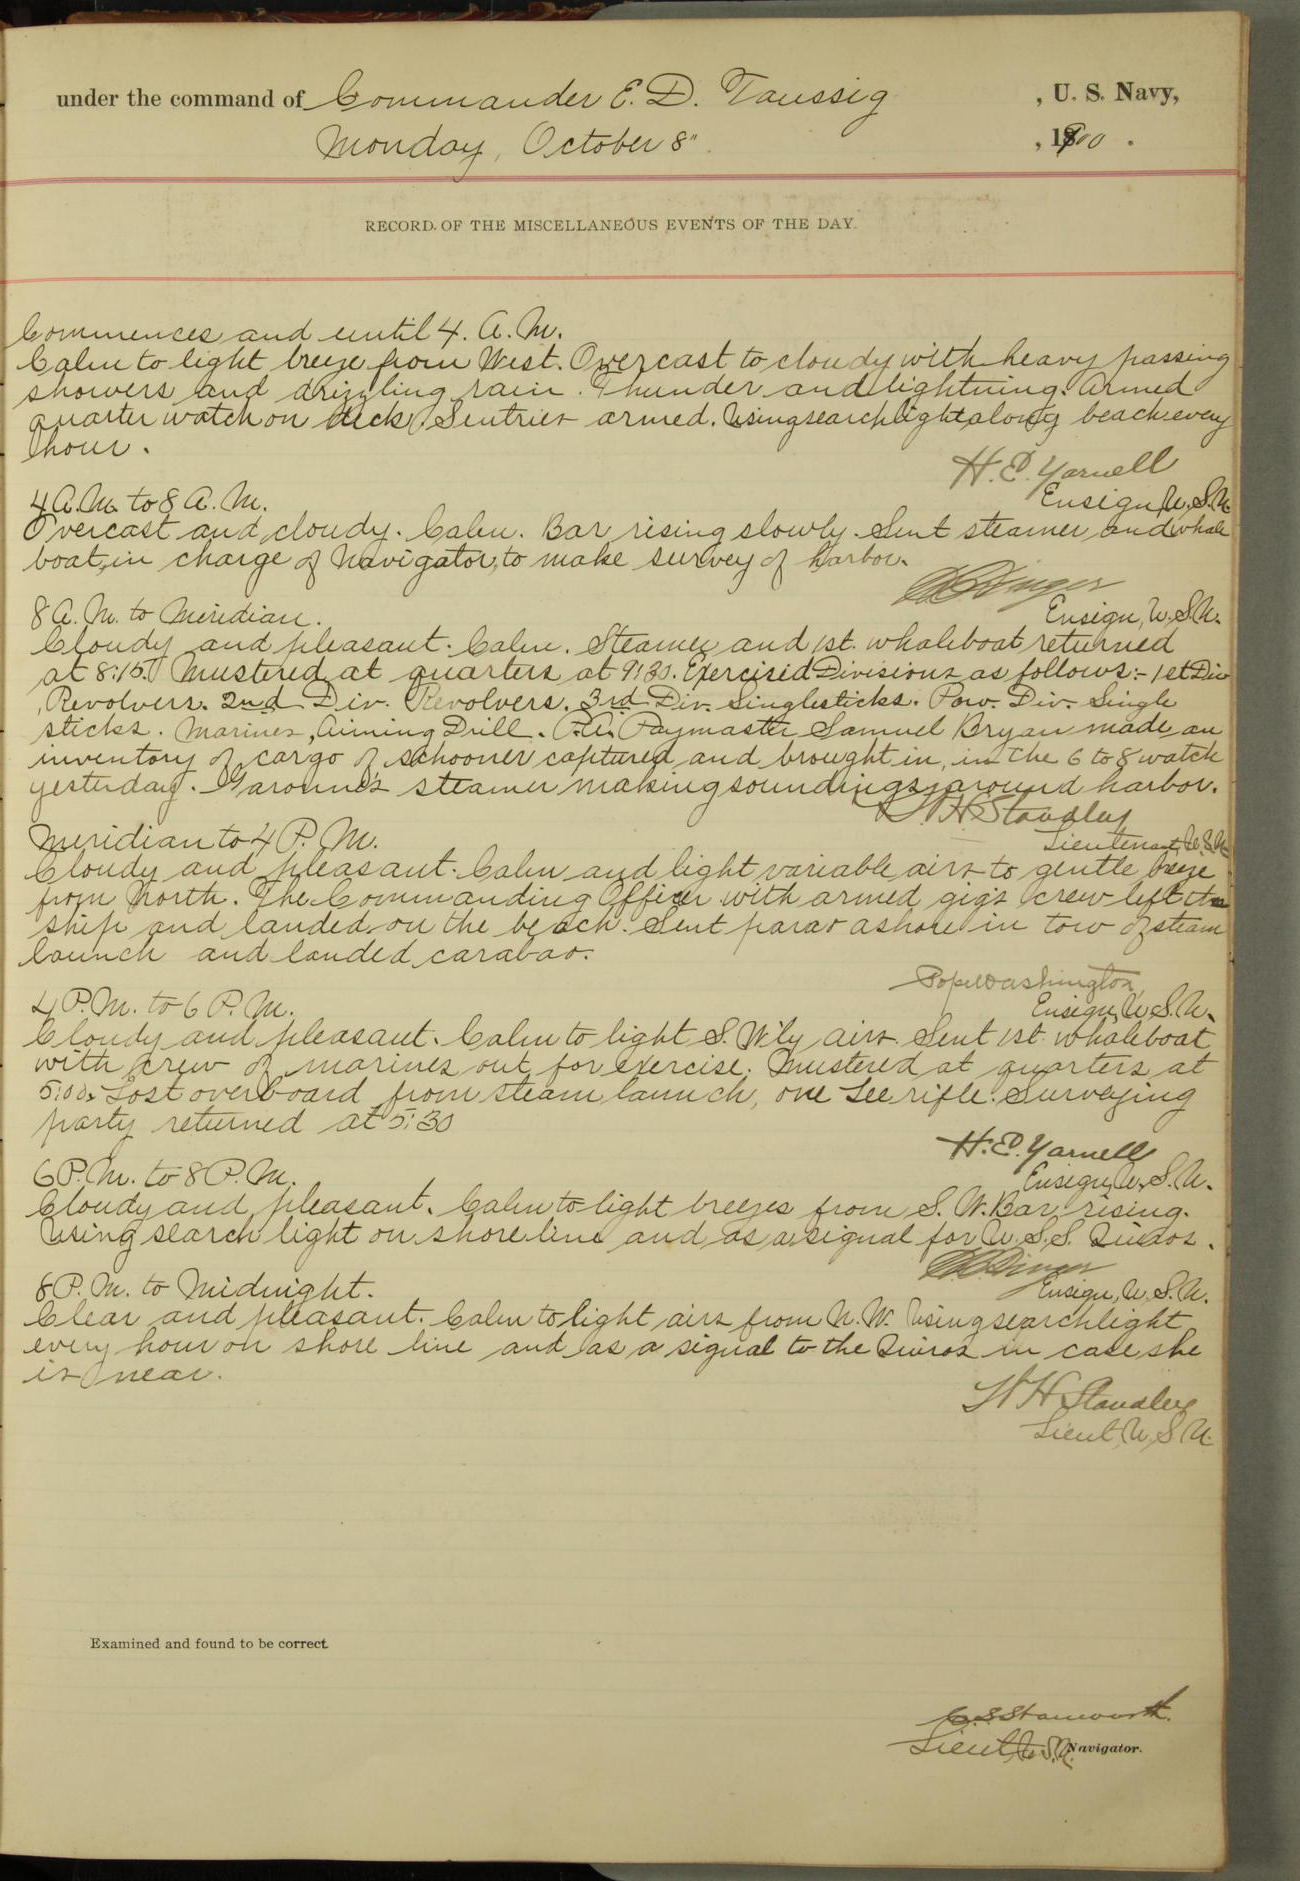 under the command of Commander E. D. Taussig, U. S. Navy,
Monday, October 8", 1900.
RECORD OF THE MISCELLANEOUS EVENTS OF THE DAY.
Commences and until 4. A. M.
Calm to light breeze from West. Overcast to cloudy with heavy passing
showers and drizzling rain. Thunder and lightning. Armed
quarter watch on deck. Sentries armed. Using search light along beach every
hour.
H. E. Yarnell
Ensign, U. S. N.
4 A. M. to 8 A. M.
Overcast and cloudy. Calm. Bar rising slowly. Sent steamer and whale
boat, in charge of Navigator, to make survey of harbor.
Ensign, U. S. N.
8 A. M. to Meridian.
Cloudy and pleasant. Calm. Steamer and 1st. whaleboat returned
at 8:15. Mustered at quarters at 9:30. Exercised Divisions as follows:- 1st Div
Revolvers. 2nd Div. Revolvers. 3rd Div. Singlesticks. Pow. Div. Single
sticks. Marines, Aiming Drill. P.A. Paymaster Samuel Bryan made an
inventory of cargo of schooner captured and brought in, in the 6 to 8 watch
yesterday. Garonne's steamer making soundings around harbor.
W H Standley
Lieutenant, U. S. N.
Meridian to 4 P. M.
Cloudy and pleasant. Calm and light variable airs to gentle breeze
from North. The Commanding Officer with armed gig's crew left the
ship and landed on the beach. Sent parao ashore in tow of steam
launch and landed carabao.
Pope Washington,
Ensign, U. S. N.
4 P. M. to 6 P. M.
Cloudy and pleasant. Calm to light S. W'ly airs. Sent 1st. whaleboat
with crew of marines out for exercise. Mustered at quarters at
5:00. Lost overboard from steam launch, one Lee rifle. Surveying
party returned at 5:30
H. E. Yarnell
Ensign, U. S. N.
6 P. M. to 8 P. M.
Cloudy and pleasant. Calm to light breezes from S. W. Bar rising.
Using search light on shore line and as a signal for U. S. S. Quiros.
Ensign, U. S. N.
8 P. M. to Midnight.
Clear and pleasant. Calm to light airs from N. W. Using searchlight
every hour on shore line and as a signal to the Quiros in case she
is near.
W H Standley
Lieut, U. S. N.
Examined and found to be correct.
C. S. Stanworth.
Lieut, U. S. N. Navigator.